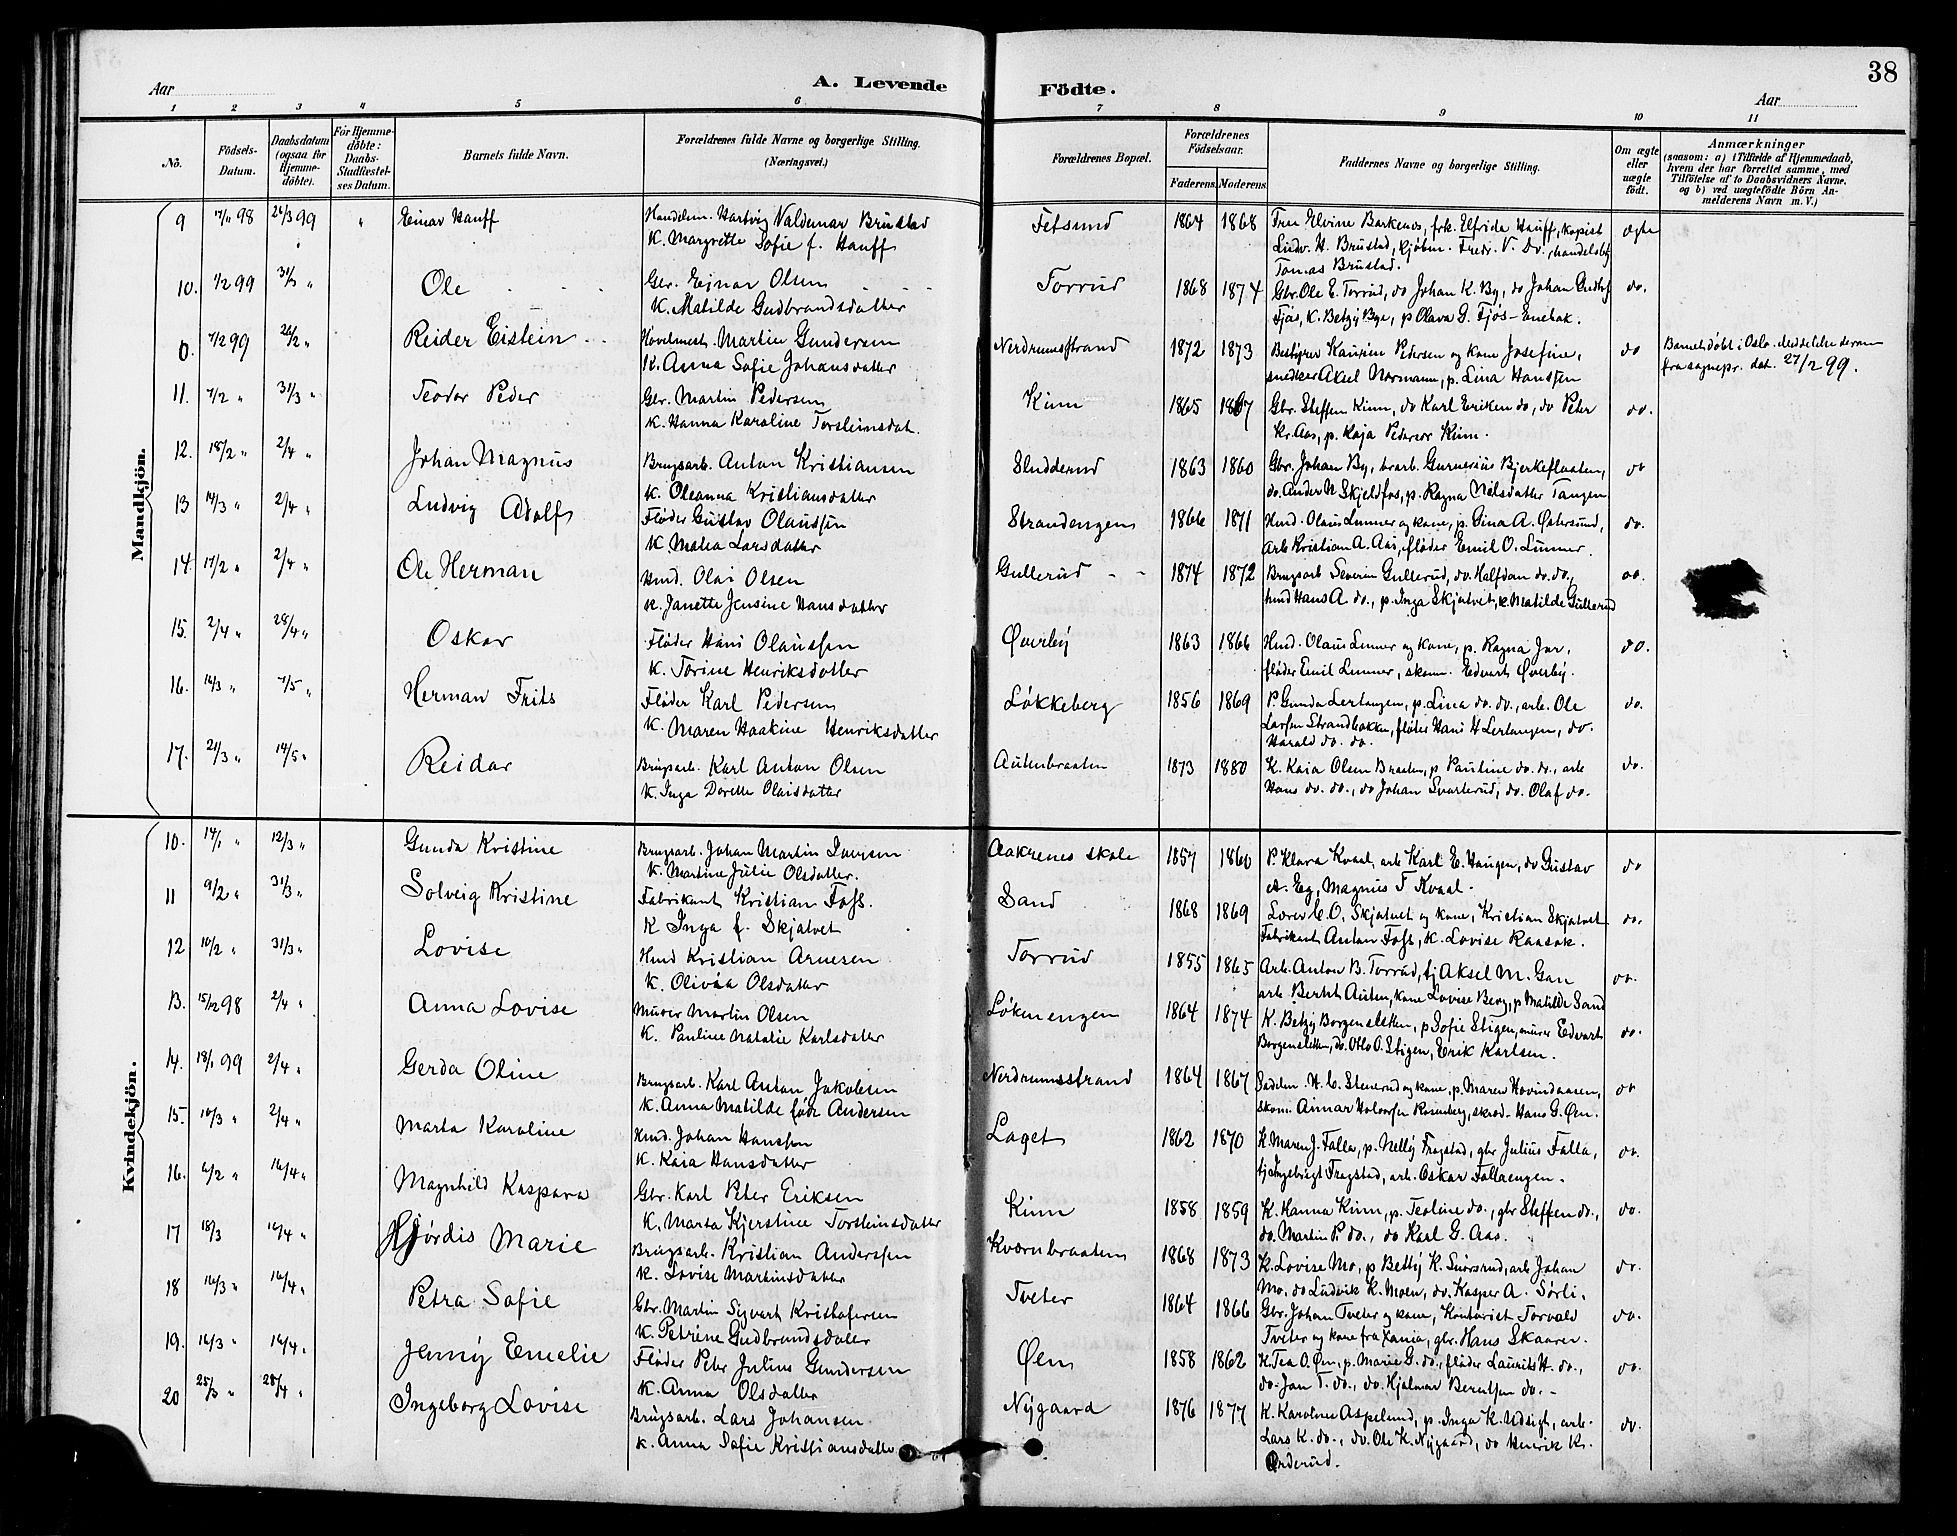 38
Aar
A. Levende Födte.
Aar
1 2 3 4 5 6 7 8 9 10 11
No.
Födsels-Datum.
Daabsdatum (ogsaa for Hjemmedöbte).
For Hjemmedöbte: Daabs-Stadfæstelses Datum.
Barnets fulde Navn.
Forældrenes fulde Navne og borgerlige Stilling. (Næringsvei.)
Forældrenes Bopæl.
Forældrenes Födselsaar.
Faderens. Moderens.
Faddernes Navne og borgerlige Stilling.
Om ægte eller uægte födt.
Anmærkninger
(saasom: a) i Tilfælde af Hjemmedaab, hvem der har forrettet samme, med Tilföielse af to Daabsvidners Navne, og b) ved uægtefödte Börn Anmelderens Navn m. V.)
Mandkjön.
9 17/11 98 26/3 99 " Einar Hauff Handelsm. Hartvig Valdemar Brustad Fetsund 1864 1868 Fru Elvine Barkenes, frk. Elfride Hauff, kopist ægte
K. Margrethe Sofie f. Hauff Ludv. H. Brustad, kjöbm. Fredr. V. do., handelsbtj
Tomas Brustad.
10. 1/2 99 31/3 " Ole Gbr. Ejnar Olsen Torrud 1868 1874 Gbr. Ole E. Torrud, do Johan K. By, do Johan do.
K. Matilde Gudbrandsdatter Fjøs, K. Betzy Bye, p Olava G. Fjøs-Enebak.
0. 7/2 99 26/2 " Reider Eistein Hovelmest. Martin Gundersen Nerdrumsstrand 1872 1873 Bestyrer Pedersen og kone Josefine, do Barnet döbt i Oslo. Meddelelse derom
K. Anna Sofie Johansdatter snedker Aksel Normann, p. Lina Hanssen fra sognepr. dat. 27/2 99.
11. 7/2 " 31/3 " Teodor Peder Gbr. Martin Pedersen Kinn 1865 1867 Gbr. Steffen Kinn, do Karl Eriksen do, do Peter do.
K. Hanna Karoline Torsteinsdat. Kr. Aas, p. Kaja Pedersen Kinn.
12. 18/2 " 2/4 " Johan Magnus Brugsarb. Anton Kristiansen Sludderud 1863 1860 Gbr. Johan By, brarb. Gurnerius Bjerkeflaaten, do
K. Oleanna Kristiansdatter do. Ander N Skjeldfos, p. Ragna Nilsdatter Tangen
13 14/3 " 2/4 " Ludvig Adolf Fløder Gustav Olaussen Strandengen 1866 1871 Hmd. Olaus Linner og kone, p. Gina A. Østersund, do.
K. Matea Larsdatter Arb Kristian A. Aas, fløder Emil O. Linner.
14. 17/2 " 2/4 " Ole Herman Hmd. Olai Olsen Gullerud 1874 1872 Brugsarb Severin Gullerud, do. Halfdan do. do., do.
K. Janette Jensine Hansdatter hmd Hans A. do., p. Inga Skjatvet, K. Matilde Gullerud
15. 2/4 " 28/4 " Oskar Fløder Hans Olaussen Øverby 1863 1866 Hmd. Olaus Linner og kone, p. Ragna Jar, do.
K. Torine Henriksdatter fløder Emil Linner, skom. Edvart Øverby.
16. 14/3 " 7/5 " Herman Frits Fløder Karl Pedersen Løkkeberg 1856 1869 P. Gunda Lertangen, p. Lina do. do., arb. Ole do.
K. Maren Haakine Henriksdatter Larsen Strandbakken, fløder Hans H Lertangen, do.
Harald do. do.
17. 21/3 " 14/5 " Reidar Brugsarb. Karl Anton Olsen Autenbraaten 1873 1880 K. Kaia Olsen Braaten, p Pauline do. do., arb do.
K. Inga Dorette Olaisdatter Hans do. do., do Johan Svarterud, do. Olaf do.
Kvindekjön.
10. 14/1 " 12/3 " Gunda Kristine Brugsarb. Johan Martin Aakrenes skole 1857 1860 P. Klara Kvaal, arb Karl E. Haugen, do Gustav do
K. Martine Julie Olsdatter. A. Eg, Magnus T Kvaal.
11 9/2 " 31/3 " Solveig Kristine Fabrikant Kristian Foss. Sand 1868 1869 Lærer C. O. Skjatvet og kone, Kristian Skjatvet do.
K Inga f. Skjatvet Fabrikant Anton Foss, K. Lovise Raasok.
12 10/2 " 31/3 " Lovise Hmd Kristian Arnesen Torrud 1855 1865 Arb. Anton B. Torrud, tj Aksel M. Gan do.
K. Olivia Olsdatter arb Bernt Auten, kone Lovise Berg, p Matilde Sand
13. 15/12 98 2/4 " Anna Lovise Murer Martin Olsen Løkenengen 1864 1874 K. Betzy Borgensletten, p Sofie Stigen, murer Edvart do.
K. Pauline Natalie Karlsdatter Borgensletten, do. Otto O. Stigen, Erik Karlsen.
14. 18/1 99 2/4 " Gerda Oline Brugsarb. Karl Anton Jakobsen Nerdrumsstrand 1864 1867 Sadelm. H. C. Stenerud og kone, p. Maren Hovindaasen, do
K. Anna Matilde født Andersen Skom. Annar Halvorsen Rosenberg, skrœd. Hans G. Øen.
15. 16/3 " 2/4 " Marta Karoline Hmd. Johan Hanssen Laget 1862 1870 K. Maren J. Falla, p. Nelly Fragstad, gbr Julius Falla, do.
K. Kaia Hansdatter tj Ingebrigt Fragstad, arb. Oskar Fallaengen.
16. 6/2 " 16/4 " Magnhild Kaspara Gbr. Karl Peter Eriksen Kinn 1858 1859 K. Hanna Kinn, p. Teoline do., gbr Steffen do., do.
K. Marta Kjerstine Torsteinsdatter do. Martin P. do., do Karl G. Aas.
17 18/3 16/4 " Hjørdis Marie Brugsarb. Kristian Anderssen Kværnbraaten 1868 1873 K. Lovise Mo, p Betty K. Snörsrud, arb Johan do.
K. Lovise Martinsdatter Mo, do Ludvik K. Moen, do. Kasper A. Sørli.
18 16/3 " 16/4 " Petra Sofie Gbr. Martin Sigvart Kristofersen Tveter 1864 1866 Gbr. Johan Tveter og kone, Kontorist Torvald do.
K. Petrine Gudbrandsdatter Tveter og kone fra Xania, gbr. Hans Skaaren.
19. 16/3 " 16/4 " Jenny Emelie Fløder Peter Julius Gundersen Øen 1858 1862 K. Tea O. Øen, p. Marie G. do., fløder Laurits H. do., do.
K. Anna Olsdatter do. Jan T. do., do. Hjalmar Berntsen do.
20 25/3 " 28/4 " Ingeborg Lovise Brugsarb. Lars Johansen Nygaard 1876 1877 K. Karoline Aspelund, p. Inga K. Udsigt, arb. do.
K. Anna Sofie Kristiansdatter Lars K. do., do. Ole K. Nygaard, do Henrik Kr.
Orderud.